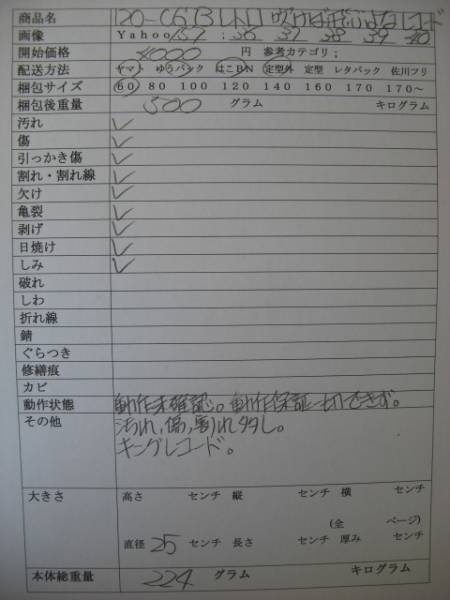 商品名 120-C6 B レトロ 吹けば飛ぶよな レコード
画像 Yahoo 157 ; 36 37 38 39 40
開始価格 3000 円 参考カテゴリ;
配送方法 ヤマト ゆうパック はこBOON 定型外 定型 レタパック 佐川フリ
梱包サイズ 60 80 100 120 140 160 170 170~
梱包後重量 500 グラム キログラム
汚れ ✓
傷 ✓
引っかき傷 ✓
割れ・割れ線 ✓
欠け ✓
亀裂 ✓
剥げ ✓
日焼け ✓
しみ ✓
破れ
しわ
折れ線
錆
ぐらつき
修繕痕
カビ
動作状態 動作未確認。動作保証一切できず。
その他 汚れ,傷,割れ多し。
キングレコード。
大きさ 高さ センチ 縦 センチ 横 センチ
(全 ページ)
直径 25 センチ 長さ センチ 厚み センチ
本体総重量 224 グラム キログラム